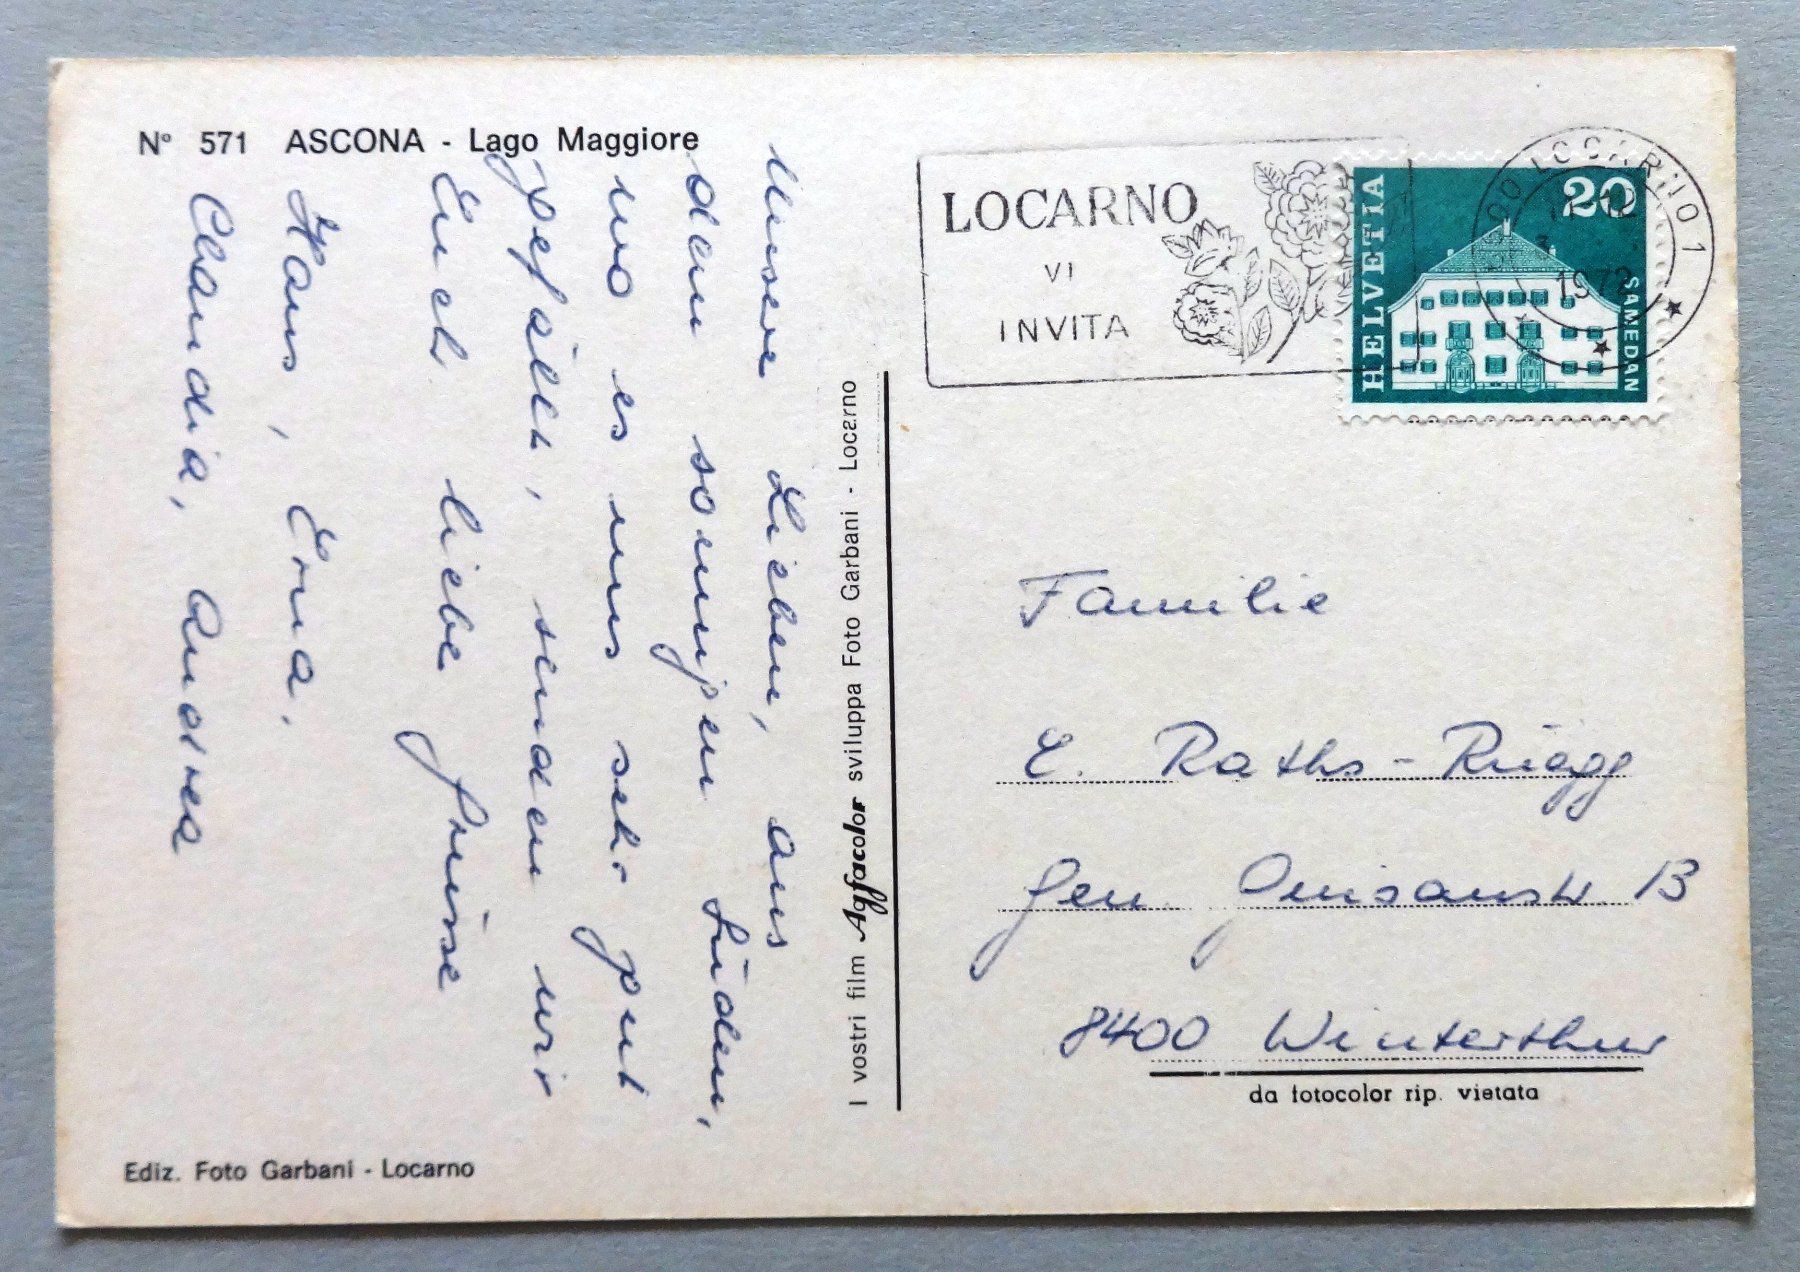 N° 571 ASCONA - Lago Maggiore
Unsere Lieben, aus
dem sonnigen Süden,
wo es uns sehr gut
gefällt, senden wir
Euch liebe Grüsse
Hans, Erna,
Claudia, Andrea
Ediz. Foto Garbani - Locarno
I vostri film Agfacolor sviluppa Foto Garbani - Locarno
LOCARNO
VI
INVITA
LOCARNO 1
1972
HELVETIA
20
SAMEDAN
Familie
E. Raths-Rüegg
Gen. Guisanstr. 13
8400 Winterthur
da fotocolor rip. vietata